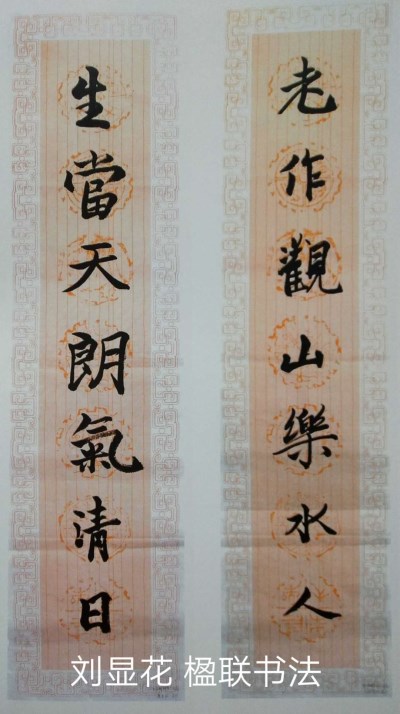 老作觀山樂水人
生當天朗氣清日
刘显花 楹联书法